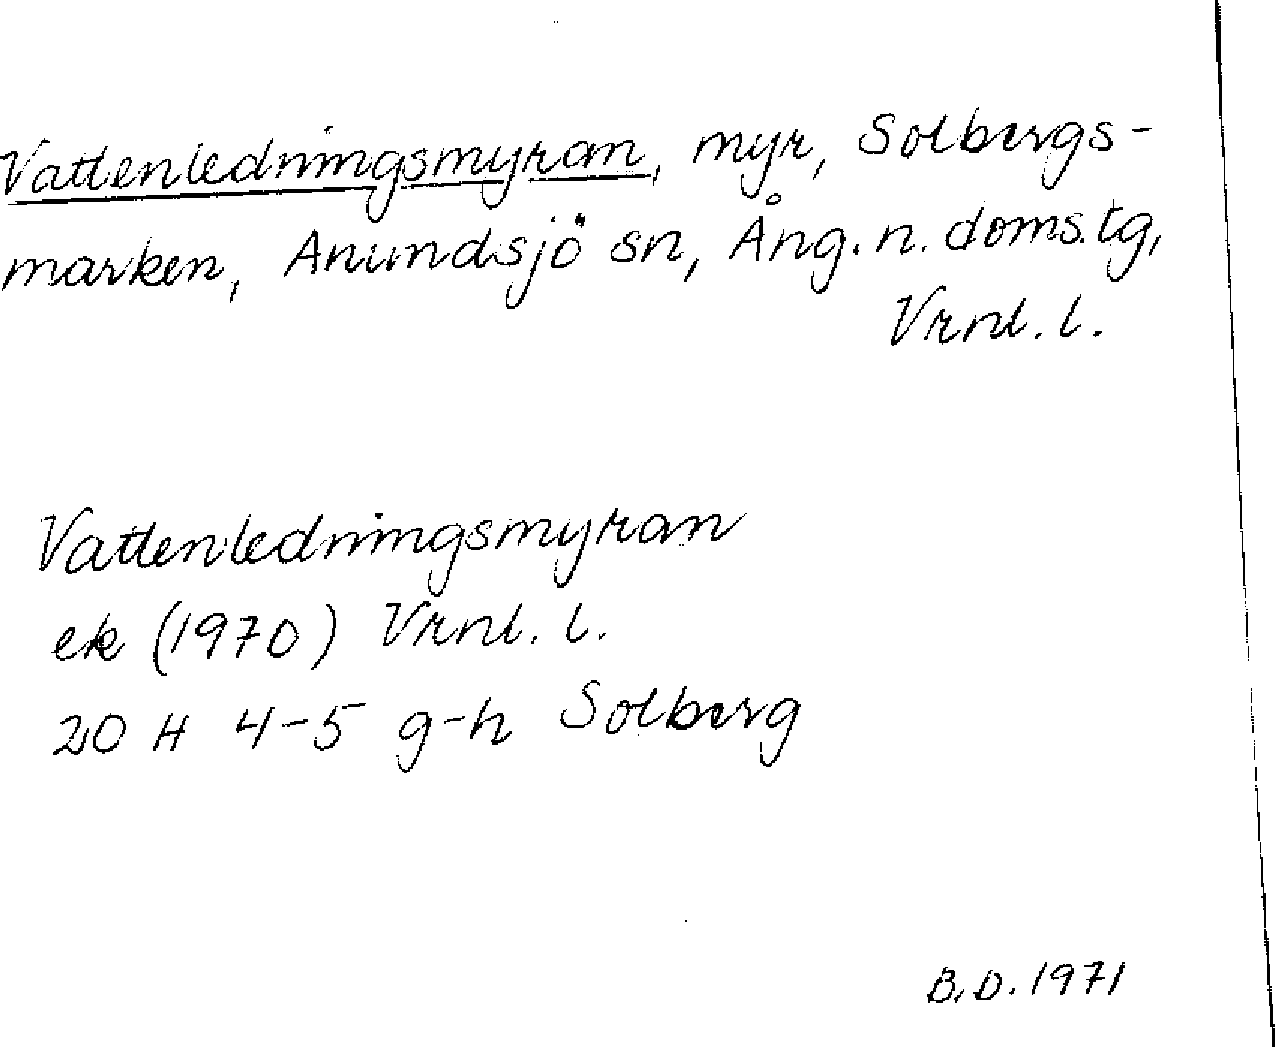 Vattenledningsmyran, myr, Solbergs-
marken, Anundsjö sn, Ång. n. doms.tg,
Vrnl. l.
Vattenledningsmyran
ek (1970) Vrnl. l.
20 H 4-5 g-h Solberg
B.D. 1971